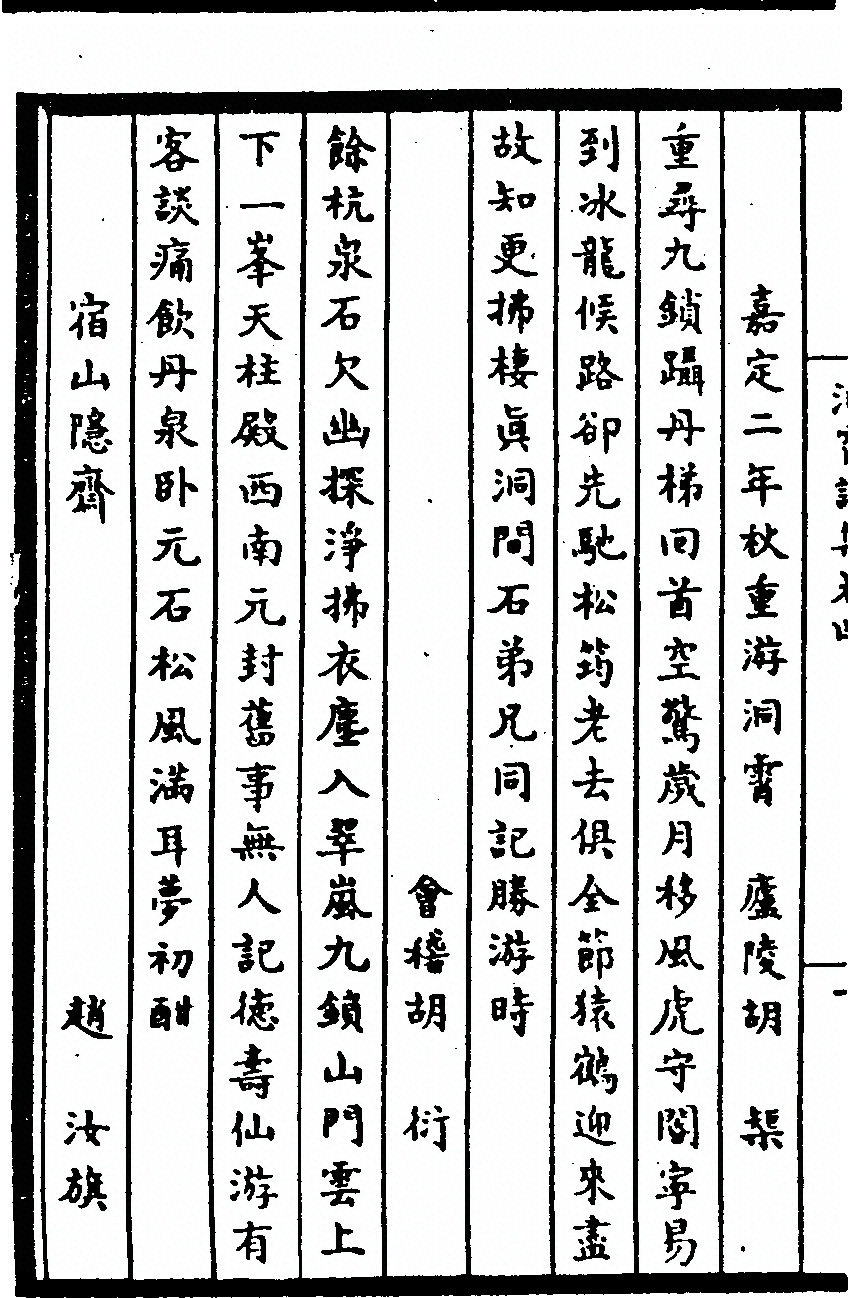 嘉定二年秋重游洞霄 廬陵胡 榘
重尋九鎖躡丹梯回首空驚歲月移風虎守關寧易
到冰龍候路卻先馳松筠老去俱全節猿鶴迎來盡
故知更拂棲真洞間石弟兄同記勝游時
會稽胡 衍
餘杭泉石欠幽探淨拂衣塵入翠嵐九鎖山門雲上
下一峯天柱殿西南元封舊事無人記德壽仙游有
客談痛飲丹泉卧元石松風滿耳夢初酣
宿山隱齋 趙 汝旗